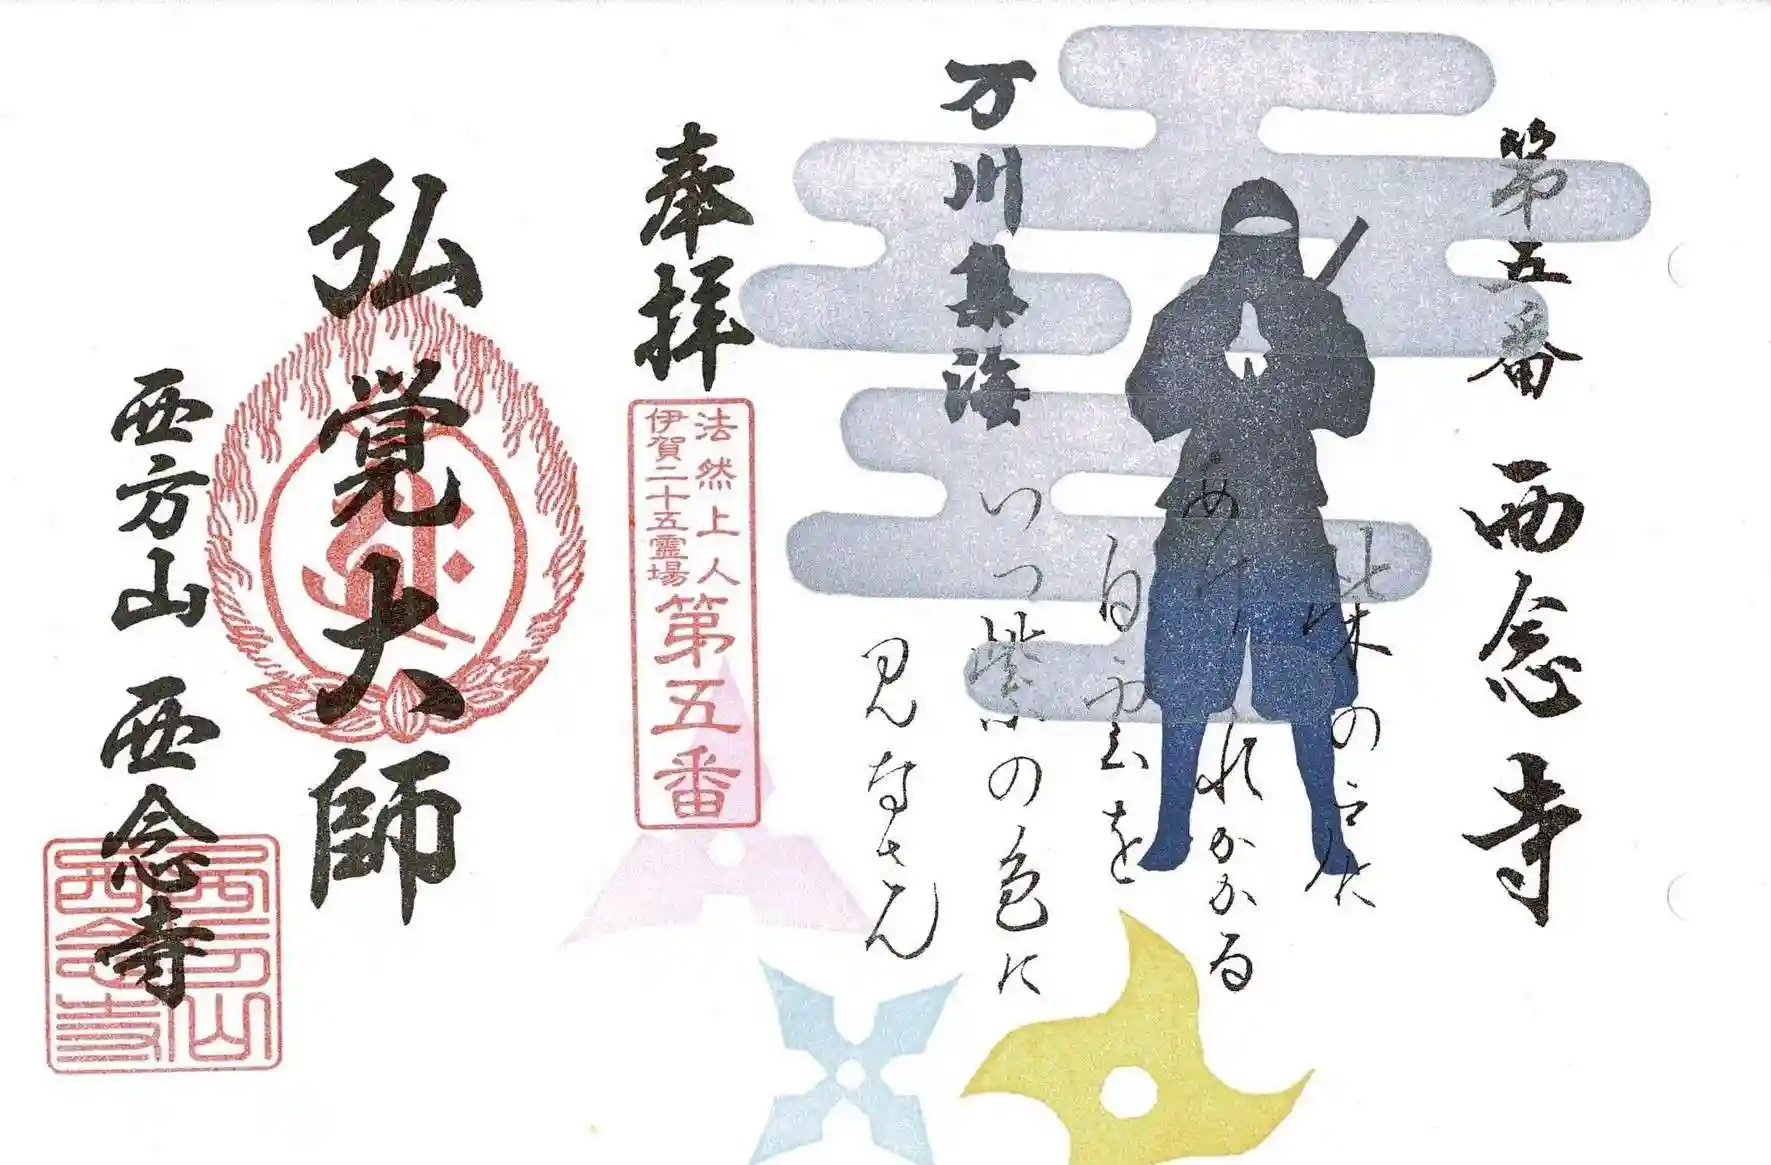 第五番 西念寺
柴の戸に
あけくれかかる
白雲を
いつ紫の色に
見なさん
万川集海
奉拝
法然上人
伊賀二十五霊場
第五番
弘覚大師
西方山 西念寺
西方山
西念寺